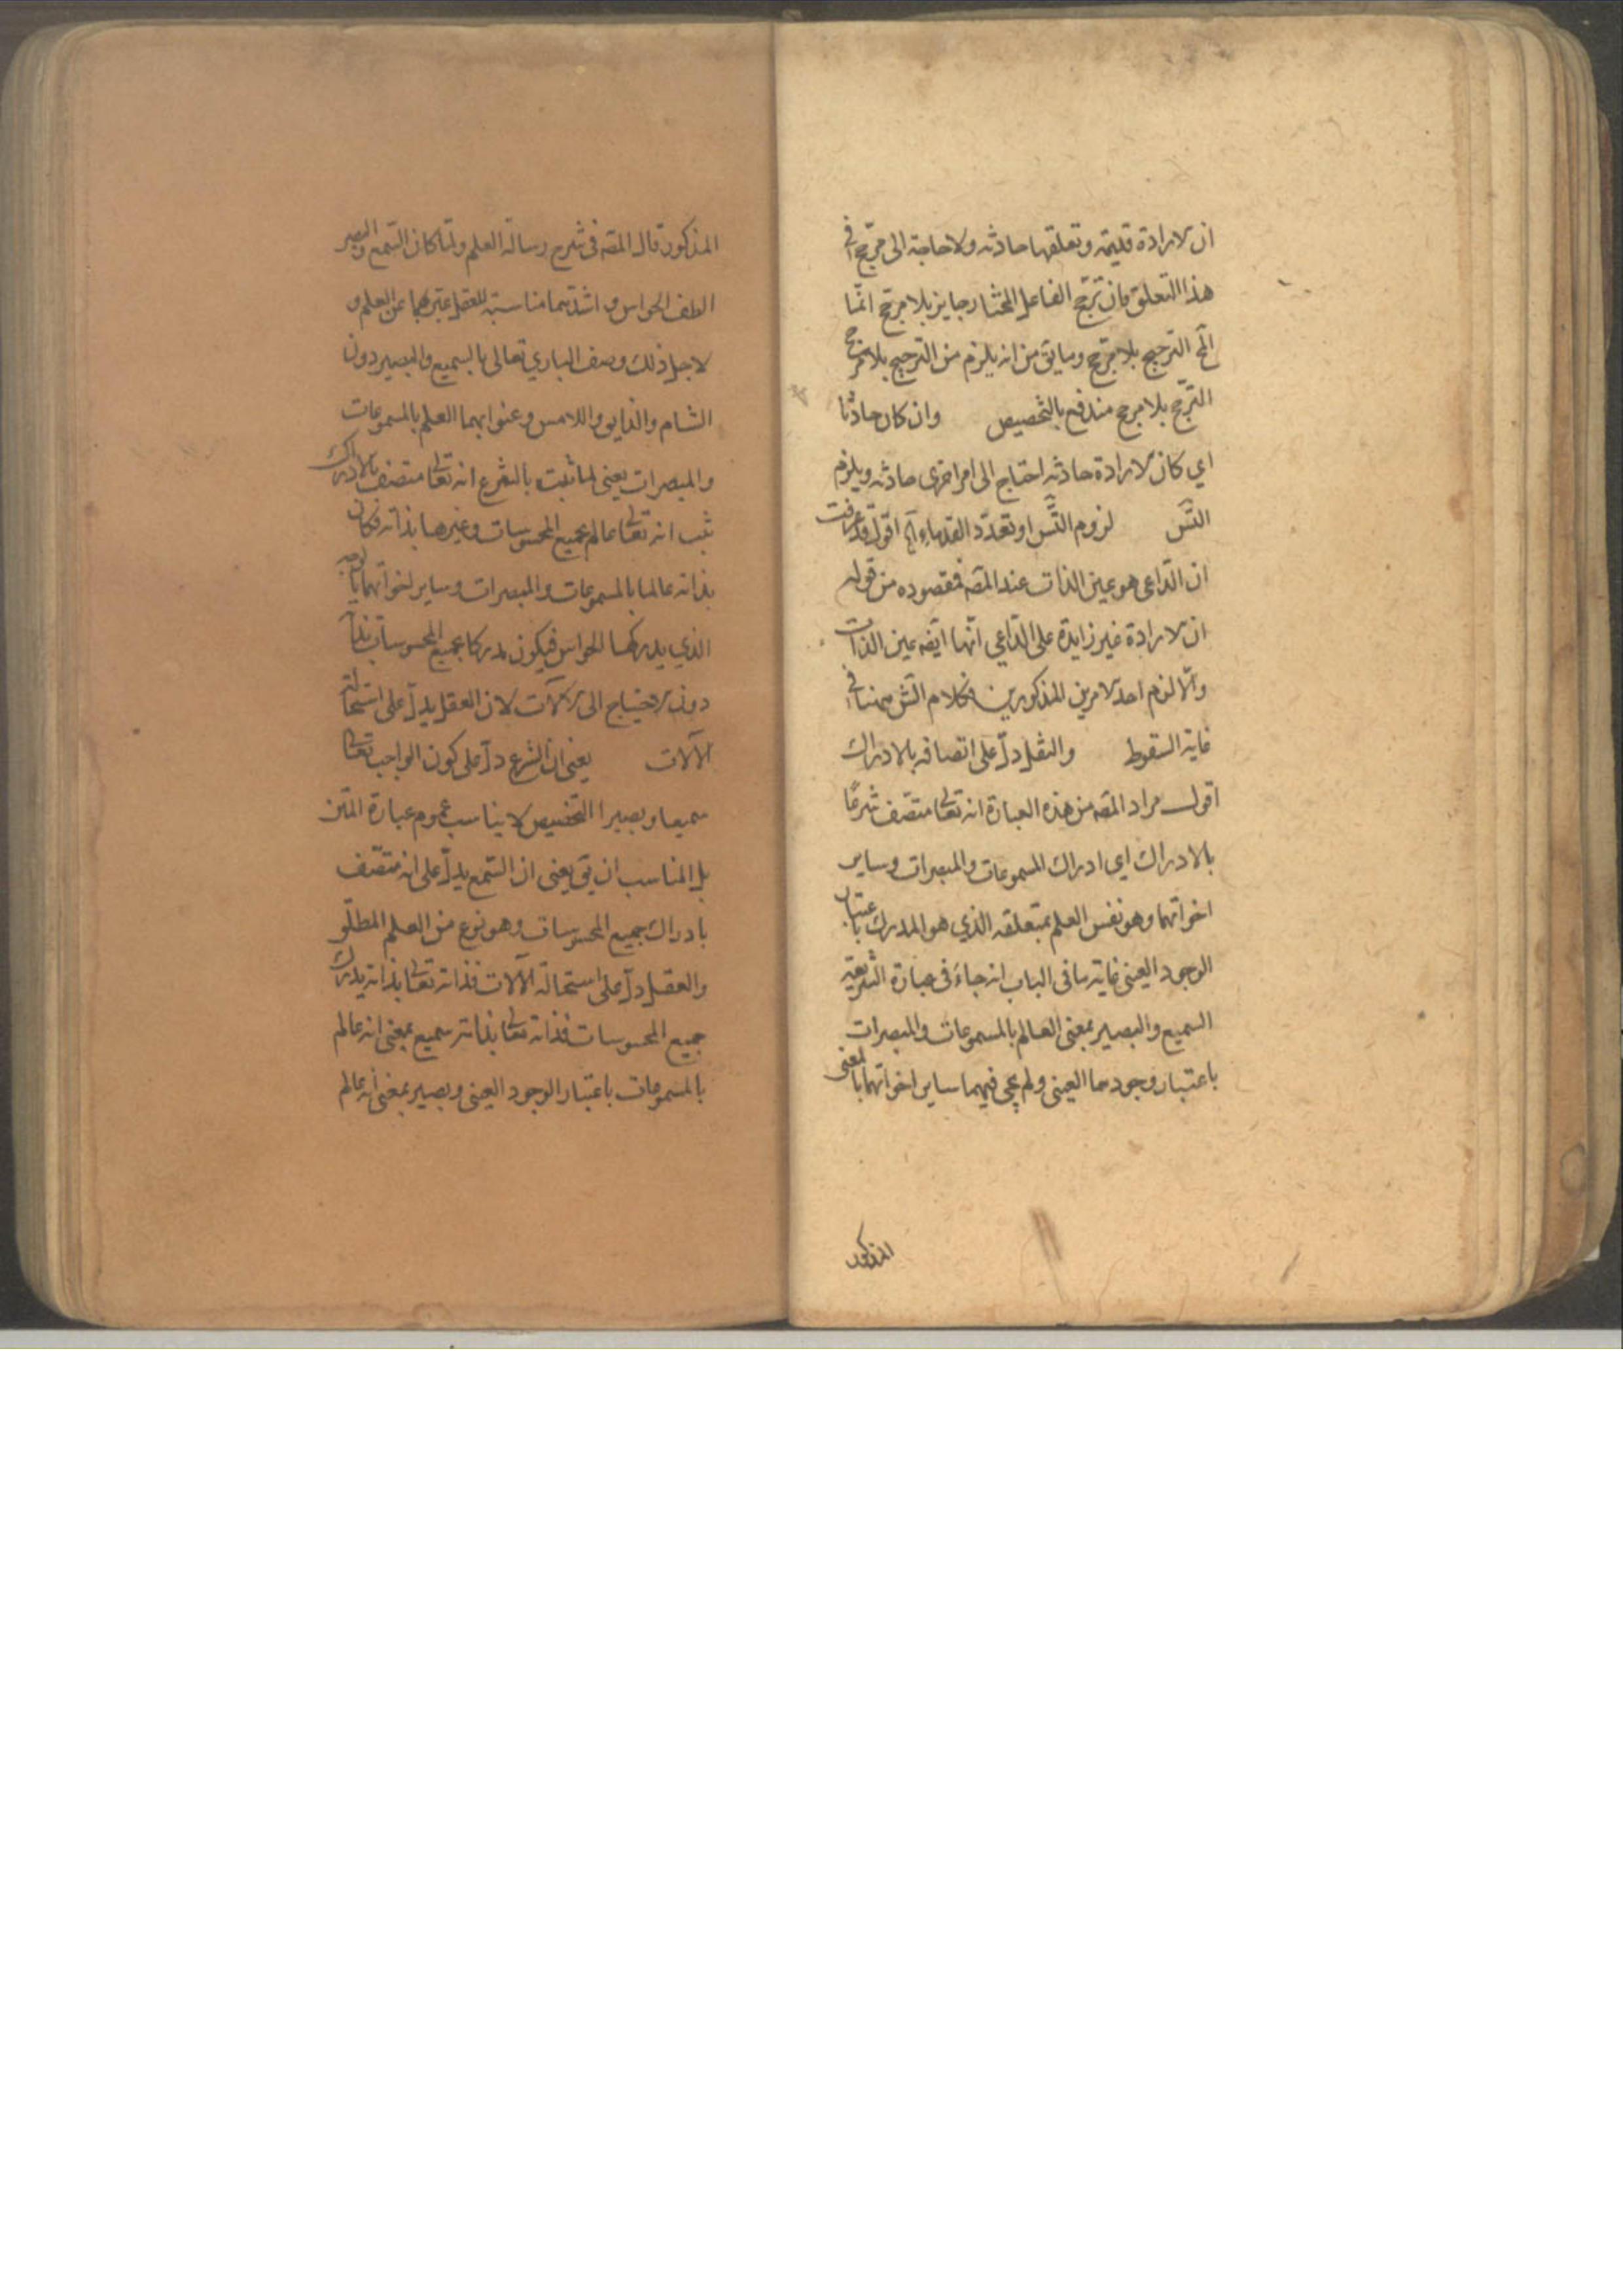 ان الارادة قديمة وتعلقها حادثه ولا حاجة الى مرجح في
هذا التعلق فان ترجح الفاعل المختار جايز بلا مرجح انما
المح الترجيح بلا مرجح وما يق من انه يلزم من الترجيح بلا مرجح
الترجح بلا مرجح مندفع بالتخصيص وان كان حادثا
اي كان الارادة حادثه احتاج الى امر اخرى حادثه ويلزم
التس لزوم التس او تعدد القدماء آه اقول قد عرفت
ان الداعى هو عين الذات عند المصه فمقصوده من قوله
ان الارادة غير زايدة على الداعي انها ايضه عين الذات
والا لزم احد الامرين المذكورين فكلام الش ههنا في
غاية السقوط والنقل دل على اتصافه بالادراك
اقول مراد المصه من هذه العبارة انه تعالى متصف شرعا
بالادراك اي ادراك المسموعات والمبصرات وساير
اخواتهما وهو نفس العلم بمتعلقه الذي هو المدرك باعتبار
الوجود العينى غاية ما فى الباب انه جاء فى عبارة الشريعة
السميع والبصير بمعنى العالم بالمسموعات والمبصرات
باعتبار وجودها العينى ولم يجى فيهما ساير اخواتهما بالمعنى
المذكور
المذكور قال المصه فى شرح رسالة العلم ولما كان السمع والبصر
الطف الحواس واشدهما مناسبة للعقل عبر بهما عن العلم و
لاجل ذلك وصف الباري تعالى بالسميع والبصير دون
الشام والذايق واللامس وعنوا بهما العلم بالمسموعات
والمبصرات يعنى لما ثبت بالشرع انه تعالى متصف بالادراك
ثبت انه تعالى عالم بجميع المحسوسات وغيرها بذاته فكان
بذاته عالما بالمسموعات والمبصرات وساير اخواتهما بالوجه
الذي يدركها الحواس فيكون مدركا بجميع المحسوسات بذاته
دون الاحتياج الى الآلات لان العقل يدل على استحالة
الآلات يعنى ان الشرع دل على كون الواجب تعالى
سميعا وبصيرا التخصيص لا يناسب عموم عبارة المتن
بل المناسب ان يق يعنى ان السمع يدل على انه متصف
بادراك جميع المحسوسات وهو نوع من العلم المطلق
والعقل دل على استحالة الآلات فذاته تعالى بذاته يدرك
جميع المحسوسات فذاته تعالى بذاته سميع بمعنى انه عالم
بالمسموعات باعتبار الوجود العينى وبصير بمعنى انه عالم